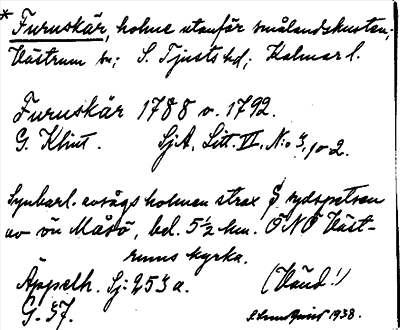 * Furuskär, holme utanför smålandskusten;
Västrum sn; S. Tjusts hd; Kalmar l.
Furuskär 1788 o. 1792.
G. Klint. SjA, Litt. VI, N:o 4, 1 o 2.
Synbarl. avsågs holmen strax S sydspetsen
av ön Måsö, bel. 5½ km. ONO Väst-
rums kyrka.
Äppelh. Sj: 253 a. (Vänd!)
G. 57. 1938.